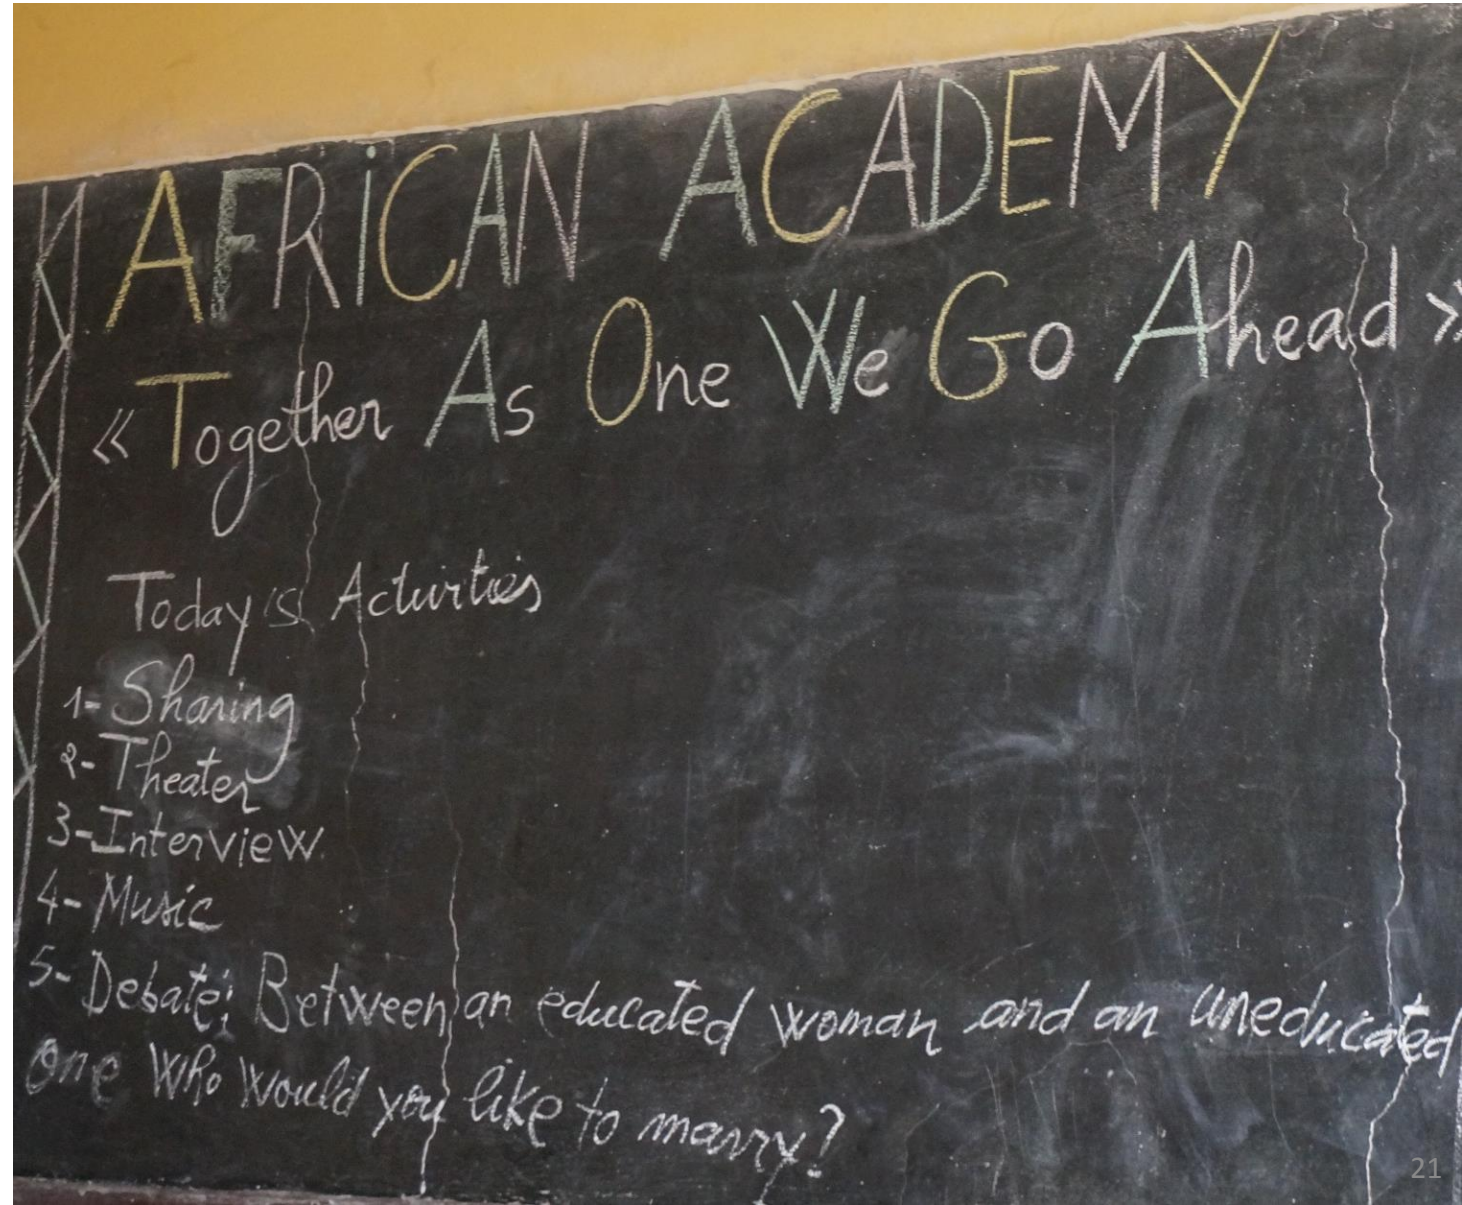 AFRiCAN ACADEMY
« Together As One We Go Ahead »
Today's Activities
1- Sharing
2- Theater
3- Interview
4- Music
5- Debate: Between an educated woman and an uneducated
one who would you like to marry?
21